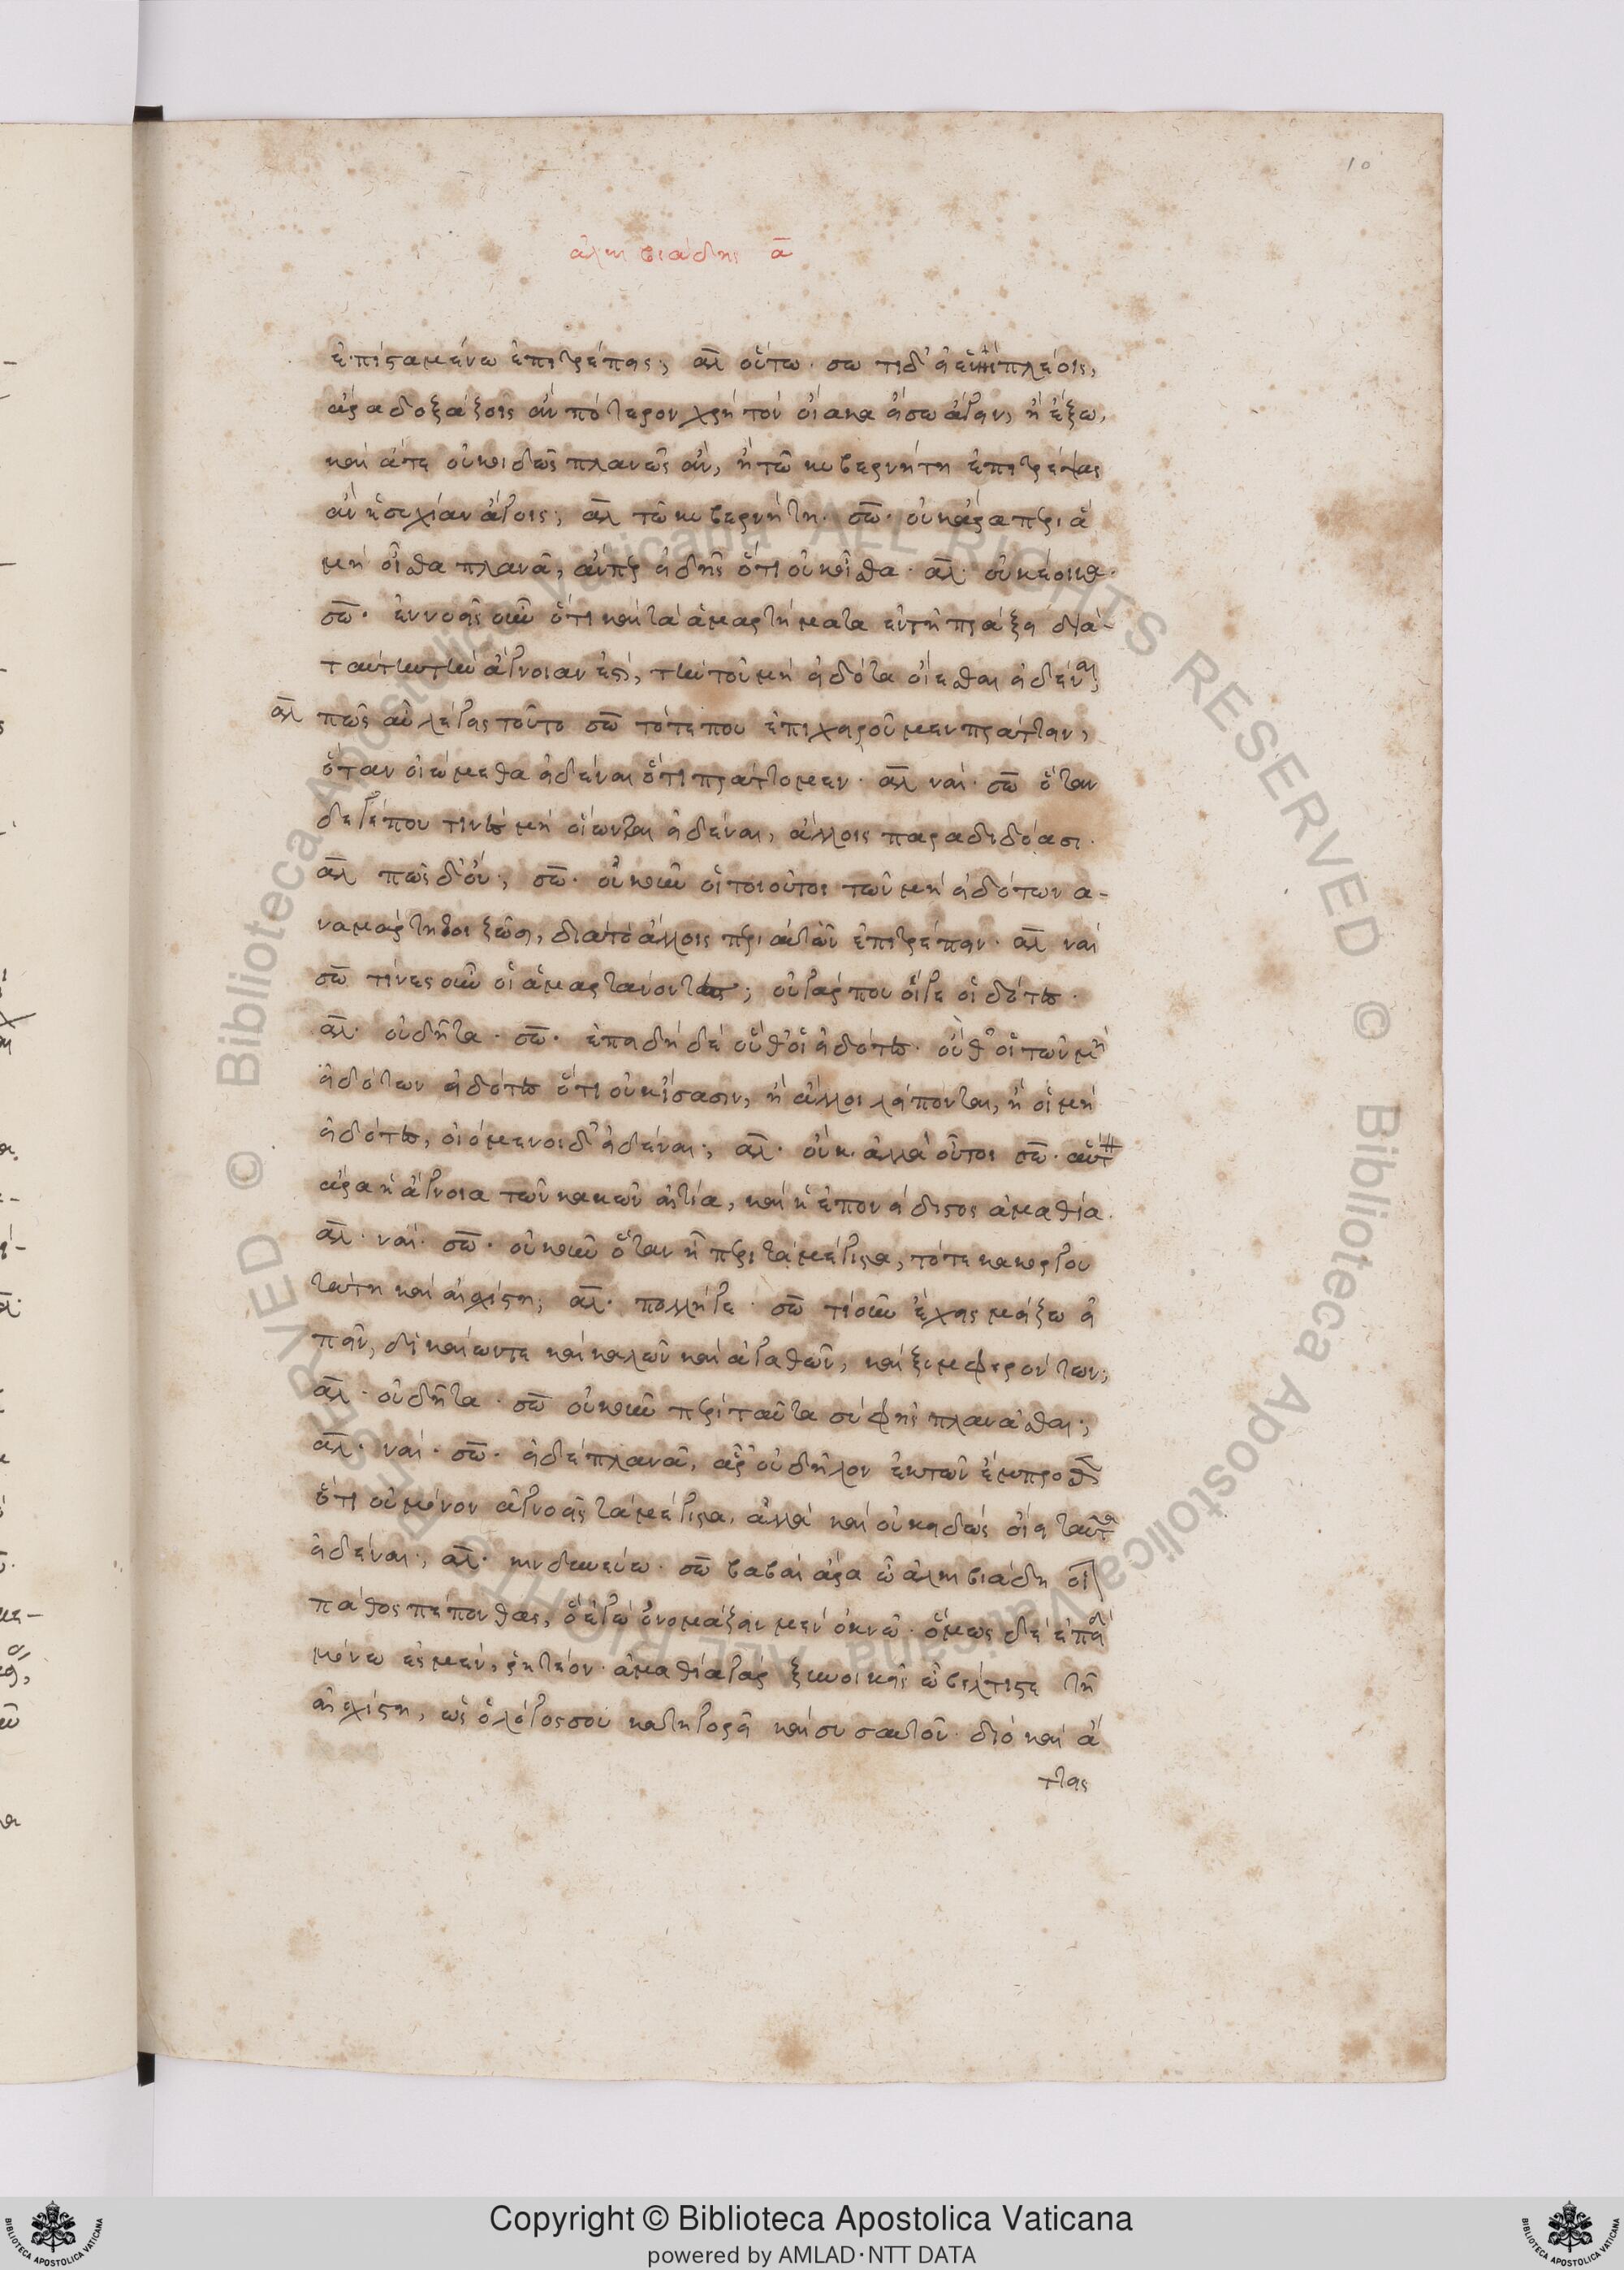 10
ἀλκιβιάδης ᾱ
ἐπισταμένω ἐπιτρέπεις; ἀλ οὕτω· σω τί δ' εἰ ἐν πλέοις,
ἆρα δοξάζοις ἂν πότερον χρὴ τὸν οἴακα εἴσω ἄγειν, ἢ ἔξω,
καὶ ἅτε οὐκ εἰδὼς πλανῶ ἂν, ἢ τῶ κυβερνήτη ἐπιτρέψας
ἂν ἡσυχίαν ἄγοις; ἀλ τῶ κυβερνήτη· σω· οὐκ ἄρα πρι ἃ
μὴ οἶσθα πλανᾶ, ἄνπερ εἰδῆς ὅτι οὐκ οἶσθα· ἀλ· οὐκ ἔοικα·
σω· ἐννοεῖς οὖν ὅτι καὶ τὰ ἁμαρτήματα ἐν τῆ πράξει διὰ-
ταύτην τὴν ἄγνοιαν ἐστὶ, τὴν τοῦ μὴ εἰδότα οἴεσθαι εἰδέναι;
ἀλ πῶς αὖ λέγεις τοῦτο σω τότε που ἐπιχειροῦμεν πράττειν,
ὅταν οἰώμεθα εἰδέναι ὅτι πράττομεν· ἀλ ναί· σω ὅταν
δέ γέ που τινὲς μὴ οἴωνται εἰδέναι, ἄλλοις παραδιδόασι·
ἀλ πῶς δ' οὔ; σω· οὐκοῦν οἱ τοιοῦτοι τῶν μὴ εἰδότων ἀ-
ναμάρτητοι ζῶσι, διὰ τὸ ἄλλοις πρι αὐτῶν ἐπιτρέπειν· ἀλ ναί
σω τίνες οὖν οἱ ἁμαρτάνοντες; οὐ γάρ που οἵ γε εἰδότες·
ἀλ· οὐ δῆτα· σω· ἐπειδὴ δὲ οὔθ' οἱ εἰδότες· οὔθ' οἱ τῶν μὴ
εἰδότων εἰδότες ὅτι οὐκ ἴσασιν, ἢ ἄλλοι λείπονται, ἢ οἱ μὴ
εἰδότες, οἰόμενοι δ' εἰδέναι; ἀλ· οὐκ ἀλλὰ οὗτοι σω· αὕτη
ἄρα ἡ ἄγνοια τῶν κακῶν αἰτία, καὶ ἡ ἐπονείδιστος ἀμαθία.
ἀλ· ναί· σω· οὐκοῦν ὅταν ἦ πρι τὰ μέγιστα, τότε κακουργου
τάτη καὶ αἰσχίστη; ἀλ· πολλή γε· σω τί οὖν ἔχεις μείζω εἰ
πεῖν, δικαίων τε καὶ καλῶν καὶ ἀγαθῶν, καὶ ξυμφερόντων;
ἀλ· οὐ δῆτα· σω οὐκοῦν πρι ταῦτα σὺ φὴς πλανᾶσθαι;
ἀλ· ναί· σω· εἰ δὲ πλανᾶ, ἆρ' οὐ δῆλον ἐκ τῶν ἔμπροσθεν
ὅτι οὐ μόνον ἀγνοεῖς τὰ μέγιστα, ἀλλὰ καὶ οὐκ εἰδὼς οἴει ταῦτα
εἰδέναι; ἀλ· κινδυνεύω· σω βαβαὶ ἄρα ὦ ἀλκιβιάδη οἷον
πάθος πέπονθας, ὃ ἐγὼ ὀνομάζειν μὲν ὀκνῶ· ὅμως δὲ ἐπεὶ
μόνω ἐσμὲν, ῥητέον· ἀμαθία γὰρ ξυνοικεῖς ὦ βέλτιστε τῆ
αἰσχίστη, ὡς ὁ λόγος σου κατηγορεῖ καὶ σὺ σαυτοῦ· διὸ καὶ ἄ
ττεις
Copyright © Biblioteca Apostolica Vaticana
powered by AMLAD·NTT DATA